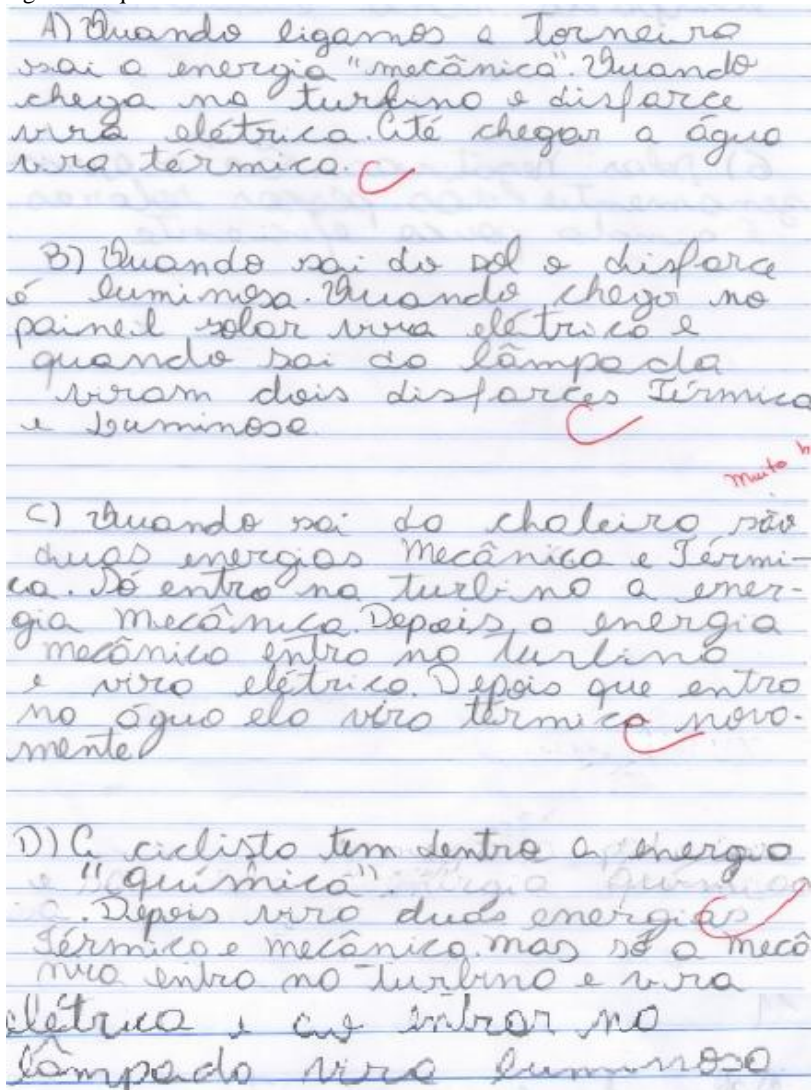 A) Quando ligamos a torneira
sai a energia "mecânica". Quando
chega na turbina o disfarce
vira elétrica. Até chegar a água
vira térmica.
B) Quando sai do sol o disfarce
é luminosa. Quando chega no
paineil solar vira elétrica e
quando sai da lâmpada
viram dois disfarces Térmica
e Luminosa.
Muito b
C) Quando sai da chaleira são
duas energias Mecânica e Térmi-
ca. Só entra na turbina a ener-
gia mecânica. Depois a energia
mecânica entra na turbina
e vira elétrica. Depois que entra
na água ela vira térmica nova-
mente
D) A ciclista tem dentro a energia
"química"
. Depois vira duas energias
Térmica e mecânica. mas só a mecâ
nica entra na turbina e vira
elétrica e ao entrar na
lâmpada vira luminosa